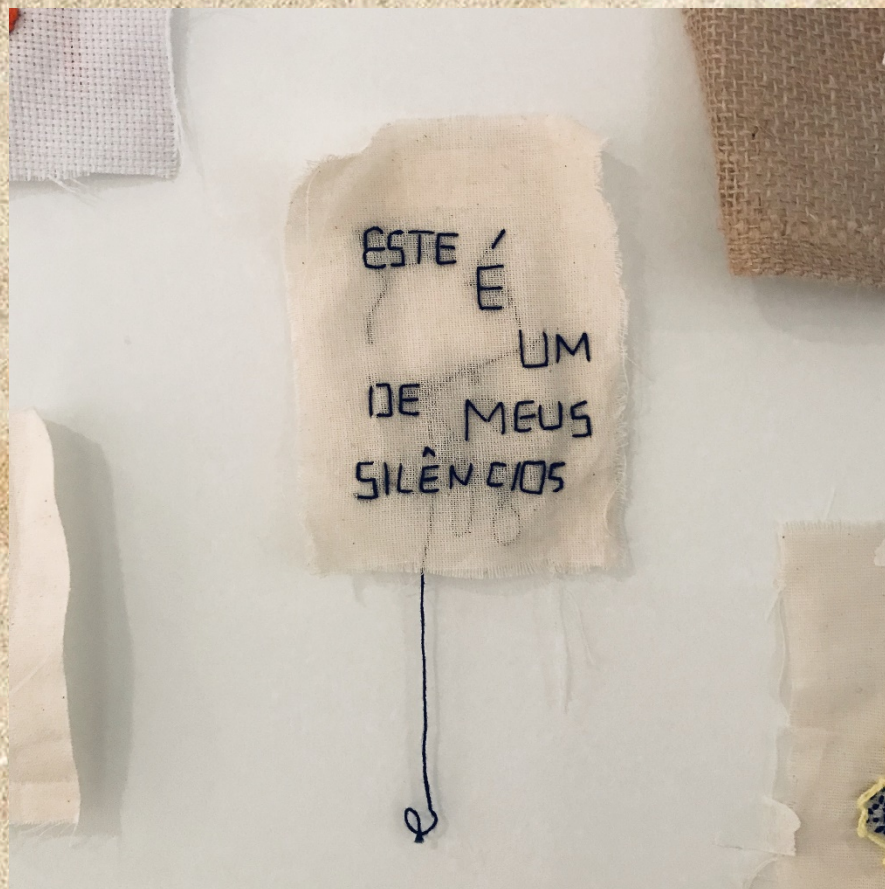 ESTE É
UM
DE MEUS
SILÊNCIOS